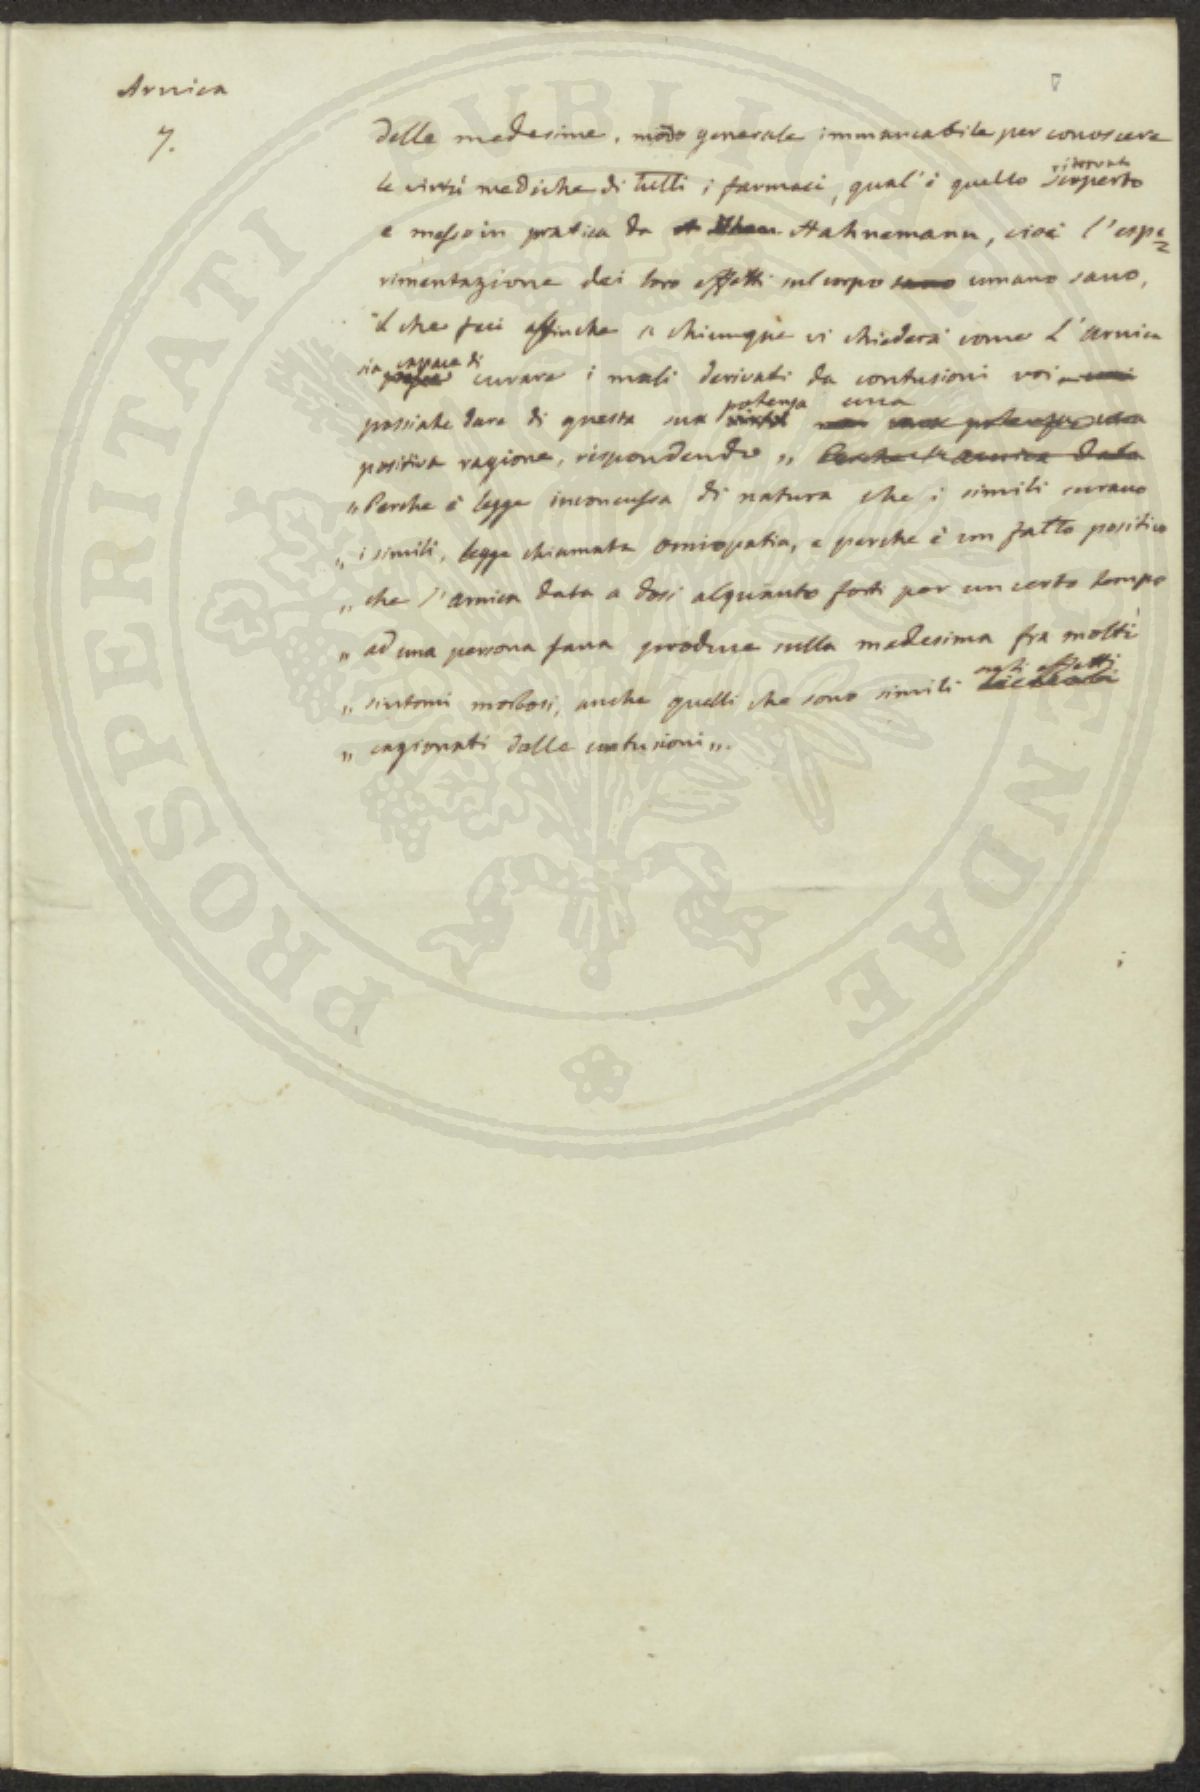 Arnica
7.
delle medesime, modo generale immancabile per conoscere
le virtù mediche di tutti i farmaci, qual'è quello scoperto
e messo in pratica da Hahnemann, cioè l'espe=
rimentazione dei loro effetti sul corpo sano umano sano,
il che feci affinche a chiunque vi chiederà come l'arnica
sia capace di
curare i mali derivati da contusioni voi
potenza una
possiate dare di questa sua virtù
positiva ragione, rispondendo „ Perche l'arnica data
„ Perche è legge inconcussa di natura che i simili curano
„ i simili, legge chiamata omiopatia, e perche è un fatto positivo
„ che l'arnica data a dosi alquanto forti per un certo tempo
„ ad una persona sana produce sulla medesima fra molti
negli effetti
„ sintomi morbosi, anche quelli che sono simili
„ cagionati dalle contusioni „.
PROSPERITATI PUBLICAE AUGENDAE